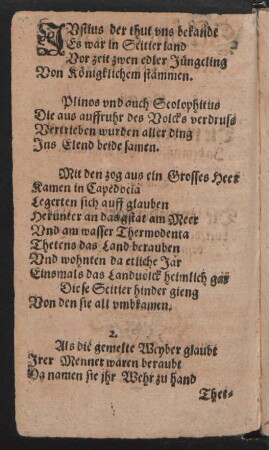 IVstius der thut vns bekande
Es war in Scitier land
Vor zeit zwen edler Jüngeling
Von Königklichem stammen.
Plinos vnd auch Scolophitus
Die aus auffruhr des Volcks verdruss
Vertrieben wurden aller ding
Ins Elend beide samen.
Mit den zog aus ein Grosses Heer
Kamen in Capedocia
Legerten sich auff glauben
Herunter an das gstat am Meer
Vnd am wasser Thermodenta
Thetens das Land berauben
Vnd wohnten da etliche Jar
Einsmals das Landuolck heimlich gar
Diese Scitier hinder gieng
Von den sie all vmbkamen.
2.
Als die gemelte Weyber glaubt
Jrer Menner waren beraubt
Da namen sie jhr Wehr zu hand
Thet-